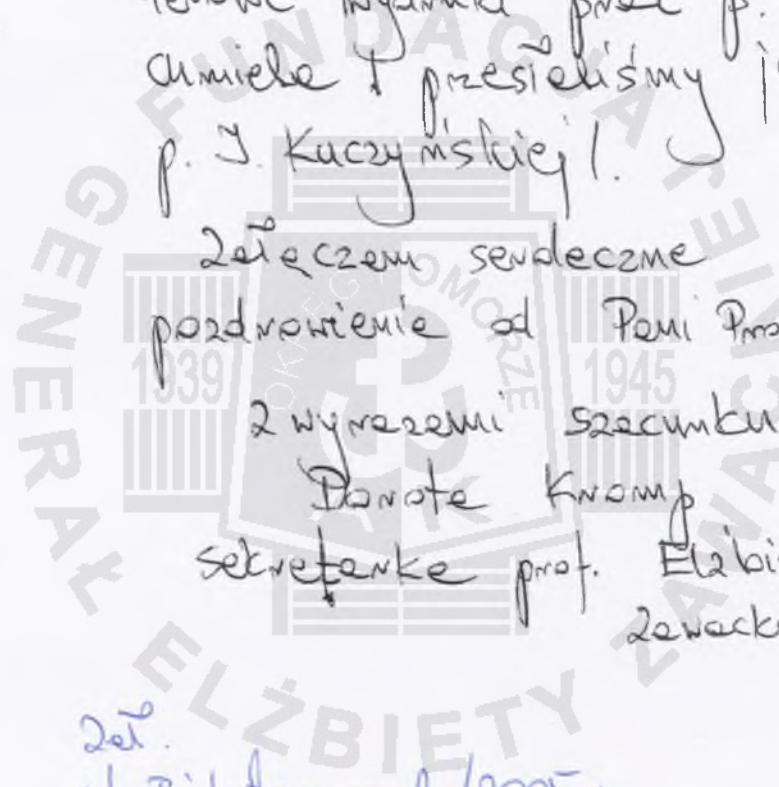 przez p.
Chmiela i przesłaliśmy
p. J. Kuczyńskiej /.
Załączam serdeczne
pozdrowienia od Pani Pro
z wyrazami szacunku
Dorota Kromp
sekretarka prof. Elżbi
Zawack
Zał.
FUNDACJA GENERAŁ ELŻBIETY ZAWACKIEJ
OKRĘG POMORZE
1939
1945
AK